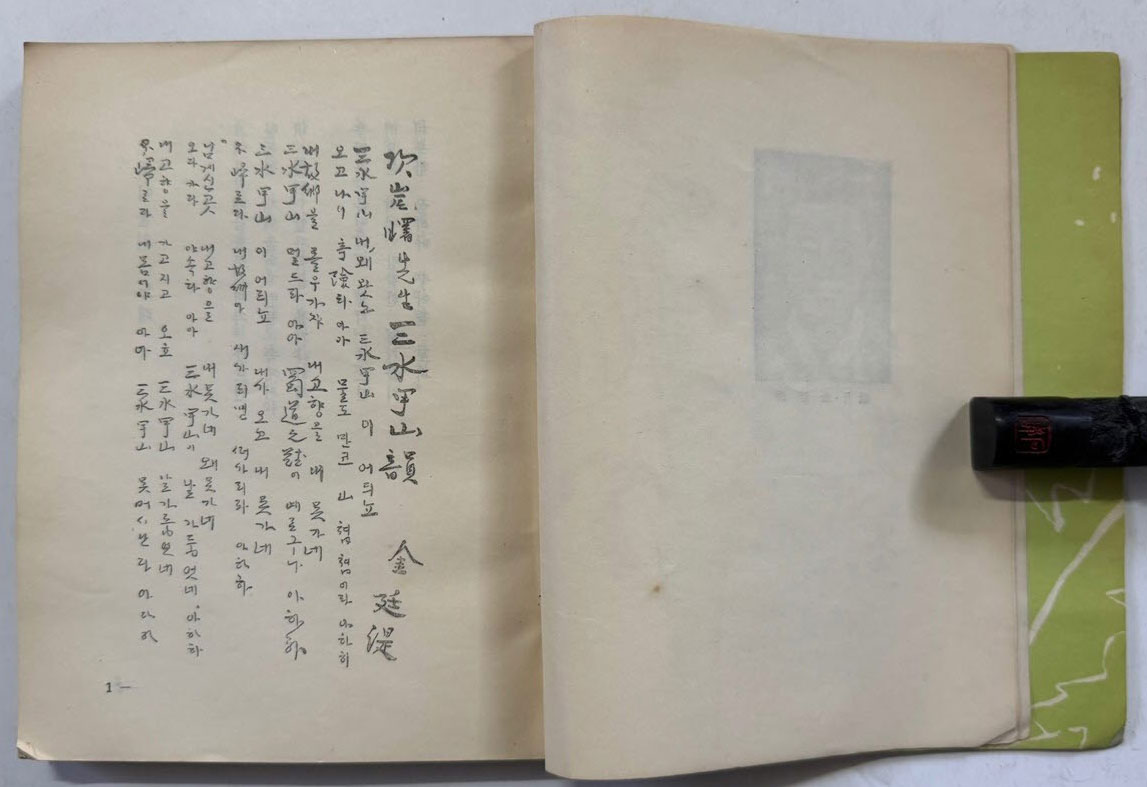 次岸曙先生三水甲山韻
金廷湜
三水甲山 내 왜 왔노 三水甲山이 어듸뇨
오고나니 奇險타 아아 물도 만코 山 疊疊이라 아하하
내 故鄕을 돌우가쟈 내 고향을 내 못가네
三水甲山 멀드라 아아 蜀道之難이 예로구나 아하하
三水甲山이 어듸뇨 내가 오고 내 못가네
不歸로다 내 故鄕아 새가 되면 떠가리라 아하하
님 계신 곳 내 고향을 내 못가네 왜 못가네
오다 가다 야속타 아아 三水甲山이 날 가둡엇네 아하하
내 고향을 가고지고 오호 三水甲山 날 가둡엇네
不歸로다 내 몸이야 아아 三水甲山 못 버서난다 아하하
1 —